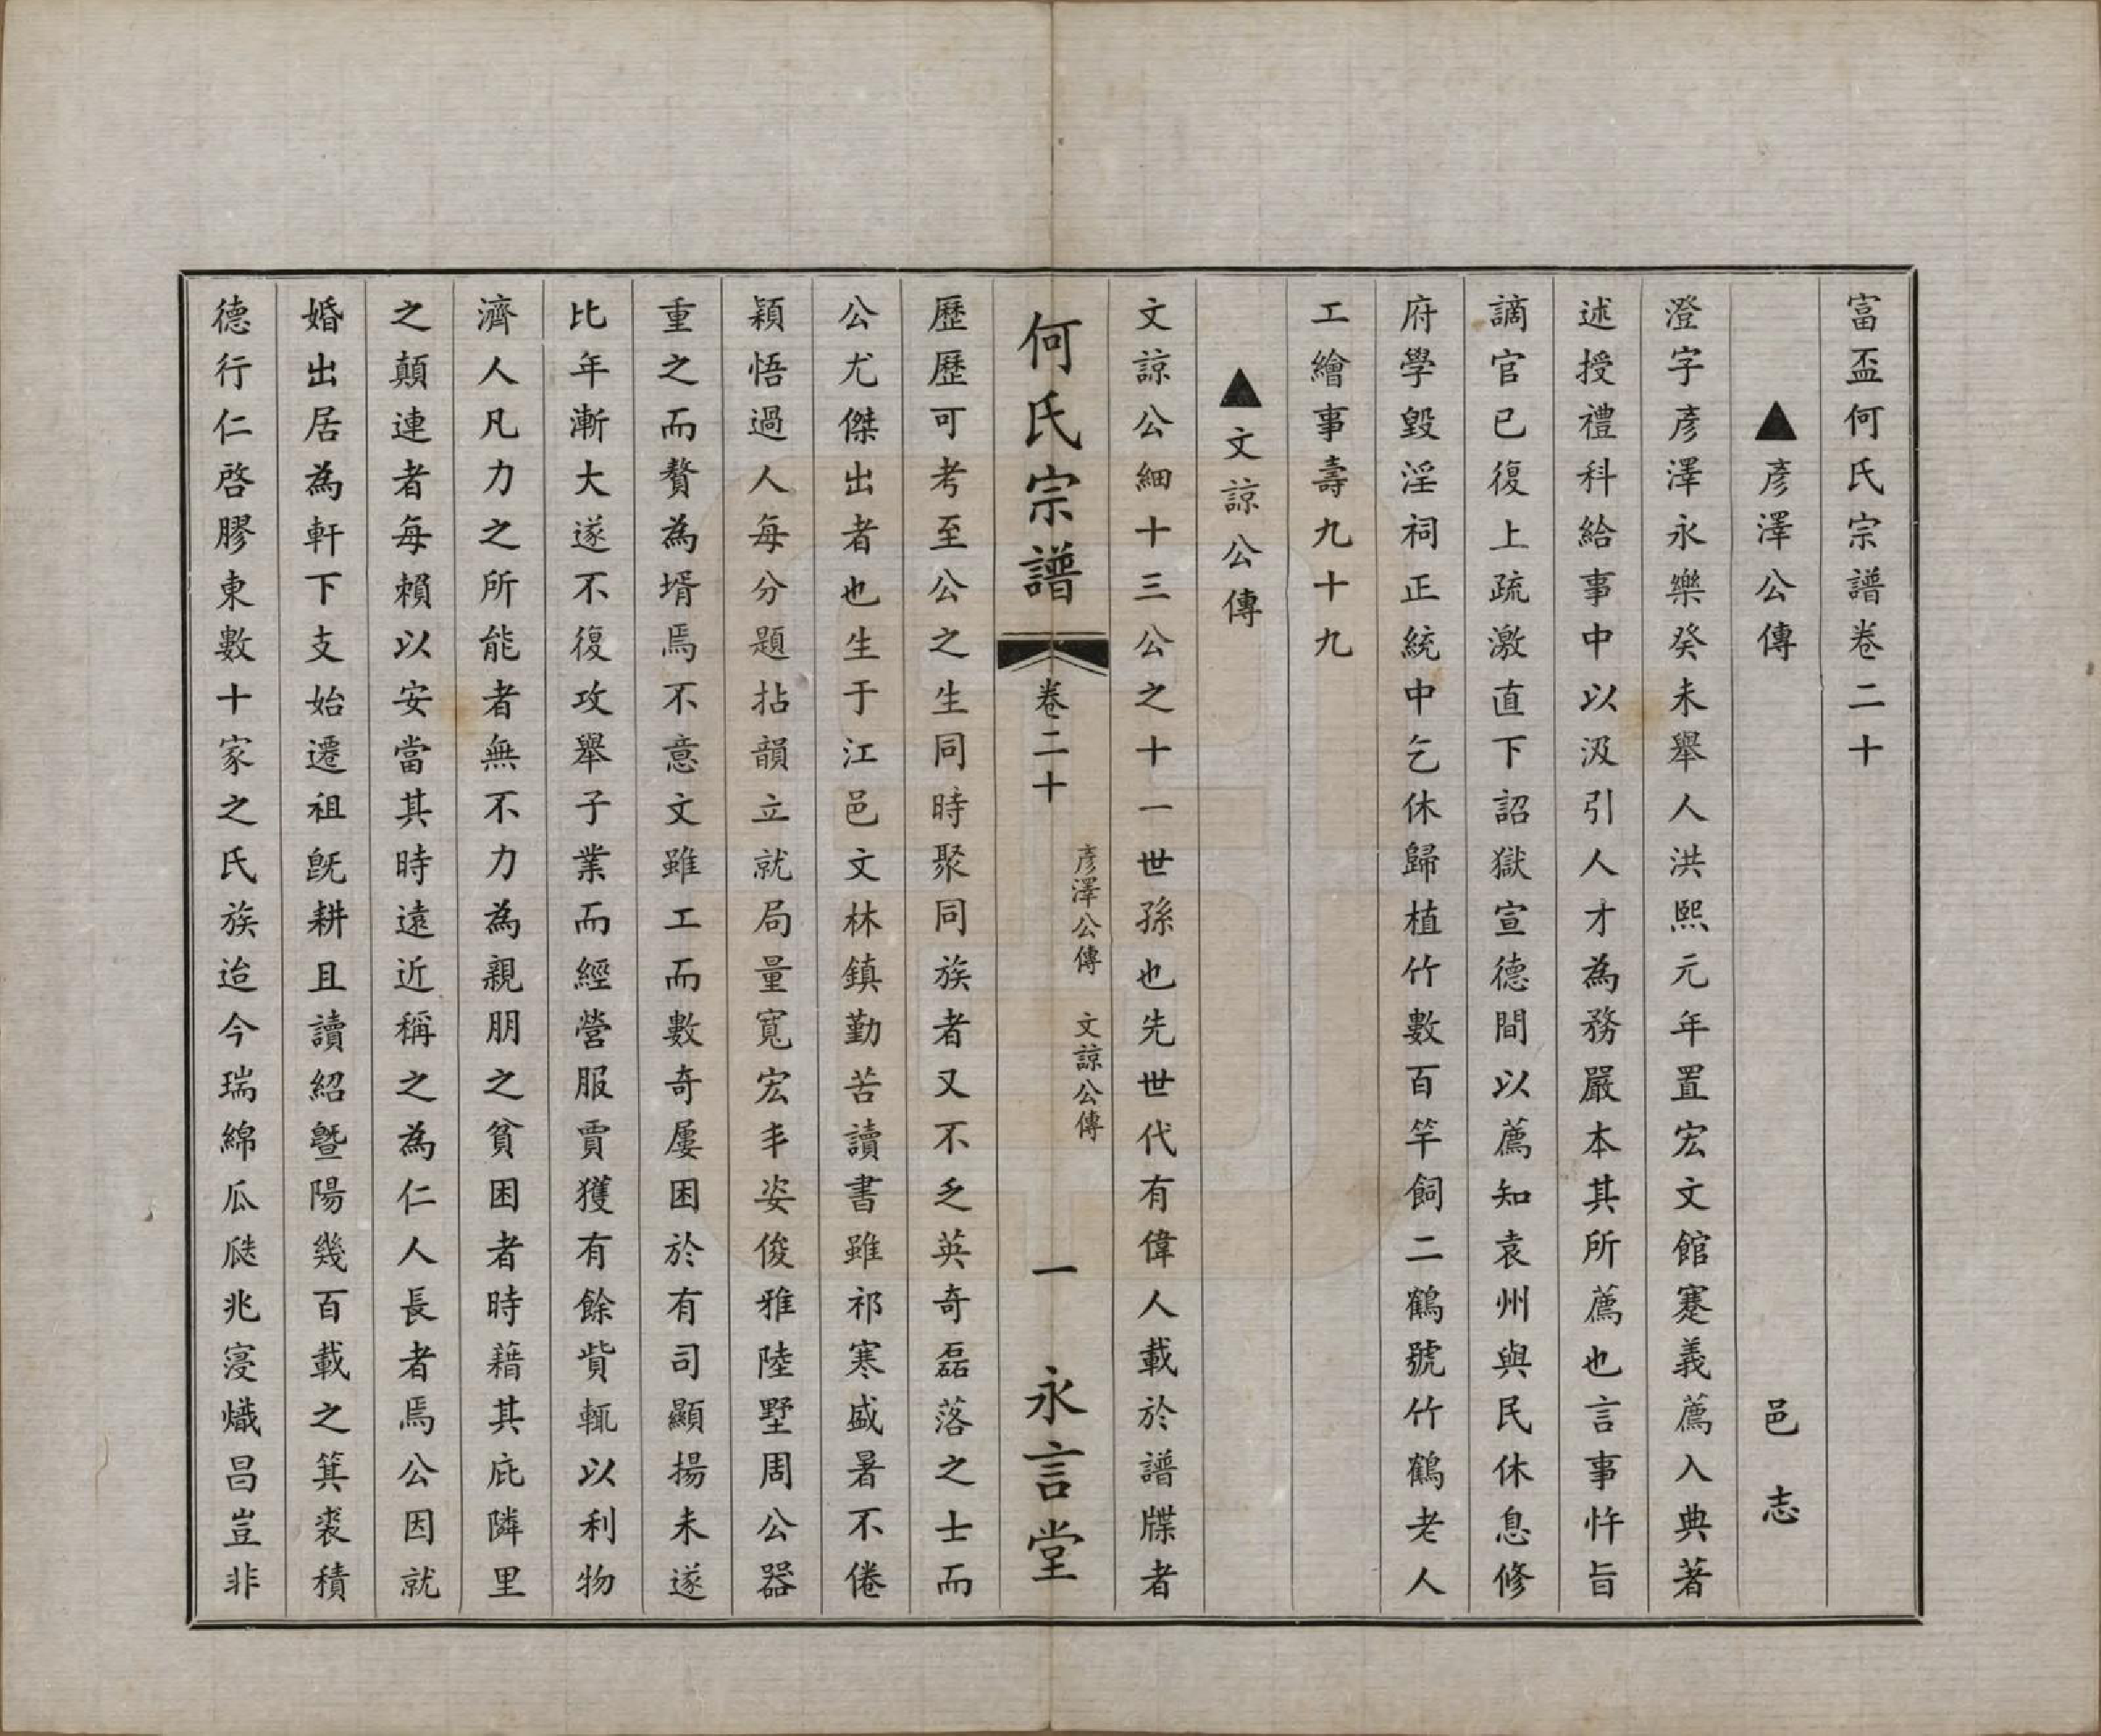 富盃何氏宗譜卷二十
▲彥澤公傳 邑志
澄字彥澤永樂癸未舉人洪熙元年置宏文館蹇義薦入典著
述授禮科給事中以汲引人才為務嚴本其所薦也言事忤旨
謫官已復上疏激直下詔獄宣德間以薦知袁州與民休息修
府學毀淫祠正統中乞休歸植竹數百竿飼二鶴號竹鶴老人
工繪事壽九十九
▲文諒公傳
文諒公細十三公之十一世孫也先世代有偉人載於譜牒者
何氏宗譜 卷二十 彥澤公傳 文諒公傳 一 永言堂
歷歷可考至公之生同時聚同族者又不乏英奇磊落之士而
公尤傑出者也生于江邑文林鎮勤苦讀書雖祁寒盛暑不倦
穎悟過人每分題拈韻立就局量寬宏丰姿俊雅陸墅周公器
重之而贅為壻焉不意文雖工而數奇屢困於有司顯揚未遂
比年漸大遂不復攻舉子業而經營服賈獲有餘貲輒以利物
濟人凡力之所能者無不力為親朋之貧困者時藉其庇隣里
之顛連者每賴以安當其時遠近稱之為仁人長者焉公因就
婚出居為軒下支始遷祖旣耕且讀紹曁陽幾百載之箕裘積
德行仁啓膠東數十家之氏族迨今瑞綿瓜瓞兆寖熾昌豈非